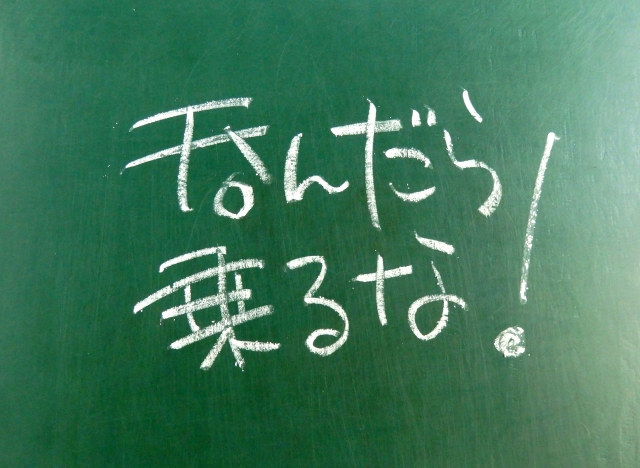 呑んだら
乗るな!